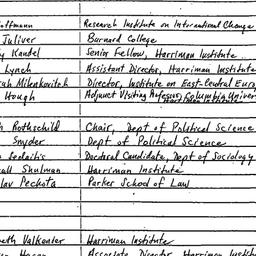 offmann Research Institute on International Change
Juliver Barnard College
y Kandel Senior Fellow, Harriman Institute
Lynch Assistant Director, Harriman Institute
rah Milenkovitch Director, Institute on East-Central Euro
Hough Adjunct Visiting Professor, Columbia Univer
Harriman Institute
h Rothschild Chair, Dept of Political Science
Snyder Dept of Political Science
Doctoral Candidate, Dept of Sociology
all Shulman Harriman Institute
lav Pechota Parker School of Law
eth Valkenier Harriman Institute
Associate Director, Harriman